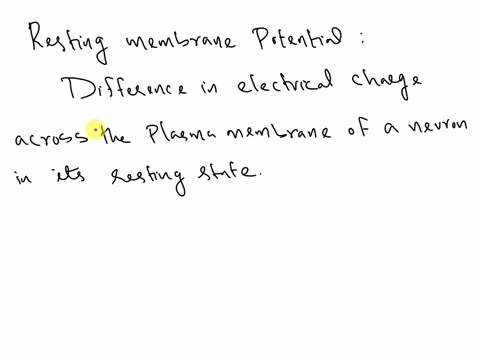 Resting membrane Potential :
Difference in electrical charge
across the Plasma membrane of a neuron
in its resting state.